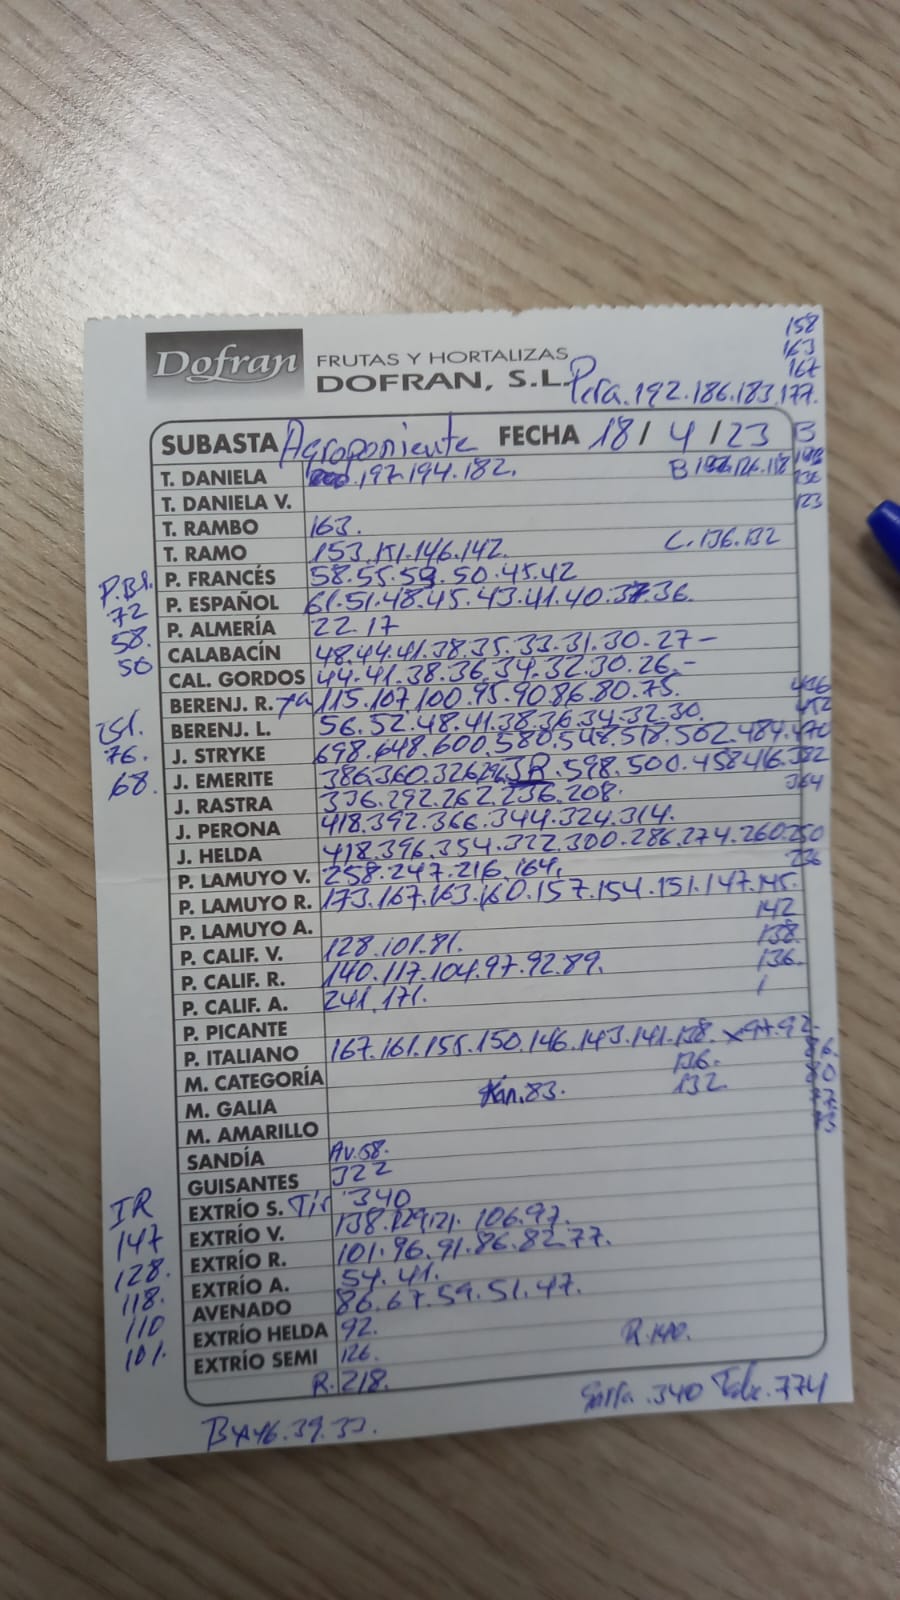 Dofran FRUTAS Y HORTALIZAS
DOFRAN, S.L.
158
163
167
Pera.192.186.183.177.
SUBASTA Agroponiente FECHA 18/4/23 B
T. DANIELA .197.194.182. B
T. DANIELA V. 123
T. RAMBO 163.
T. RAMO 153.151.146.142. C.136.132
P. FRANCÉS 58.55.59.50.45.42
P.Bl.
72
58.
50
P. ESPAÑOL 61.51.48.45.43.41.40.37.36.
P. ALMERÍA 22.17
CALABACÍN 48.44.41.38.35.33.31.30.27-
CAL. GORDOS 44.41.38.36.34.32.30.26.-
BERENJ. R. 115.107.100.95.90.86.80.75.
BERENJ. L. 56.52.48.41.38.36.34.32.30.
151.
76.
68.
J. STRYKE 698.648.600.580.548.518.502.484.470
J. EMERITE 386.360.326.296.JR.598.500.458.416.382
364
J. RASTRA 336.292.262.236.208.
J. PERONA 418.392.366.344.324.314.
J. HELDA 418.396.354.322.300.286.274.260.250
236
P. LAMUYO V. 258.247.216.164.
P. LAMUYO R. 173.167.163.160.157.154.151.147.145.
142
138.
136.
P. LAMUYO A.
P. CALIF. V. 128.101.81.
P. CALIF. R. 140.117.104.97.92.89.
P. CALIF. A. 241.171.
P. PICANTE
P. ITALIANO 167.161.155.150.146.143.141.138. x97.92.
136.
132.
86.
80
77.
73
M. CATEGORÍA
M. GALIA 83.
M. AMARILLO
SANDÍA Av.58.
GUISANTES 322
EXTRÍO S. Tir 340
EXTRÍO V. 138.129.121. 106.97.
EXTRÍO R. 101.96.91.86.82.77.
EXTRÍO A. 54.41.
AVENADO 86.67.59.51.47.
EXTRÍO HELDA 92. R.140.
EXTRÍO SEMI 126.
IR
147
128.
118.
110
101.
R.218.
340 774
46.39.33.